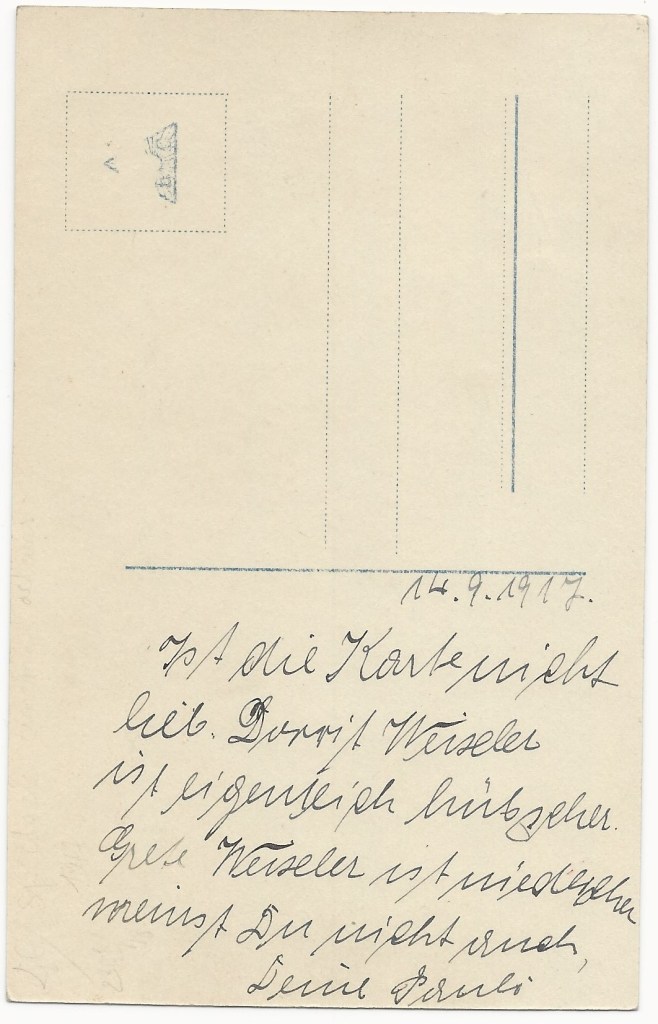 14.9.1917.
Ist die Karte nicht
lieb. Dorrit Weixeler
ist eigentlich hübscher.
Grete Weixeler ist niedlicher
meinst Du nicht auch,
Deine Pauli